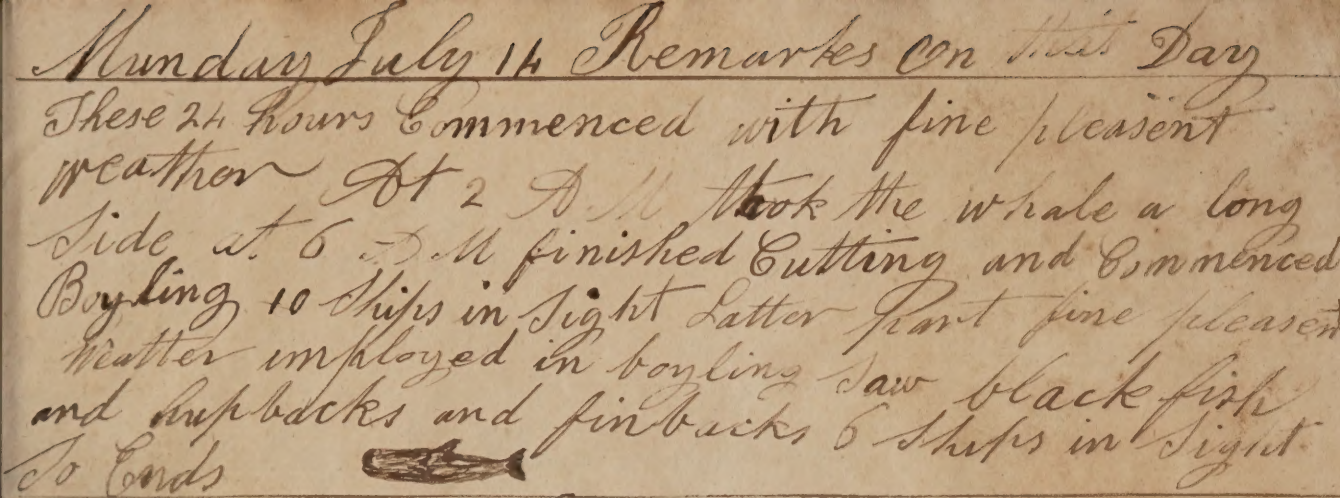 Munday July 14 Remarkes on this Day
These 24 hours Commenced with fine pleasent
weather At 2 A M took the whale a long
Side at 6 A M finished Cutting and Commenced
Boyling 10 Ships in Sight Latter part fine pleasen
Weatter imployed in boyling Saw black fish
and hupbacks and finbacks 6 Ships in Sight
So Ends